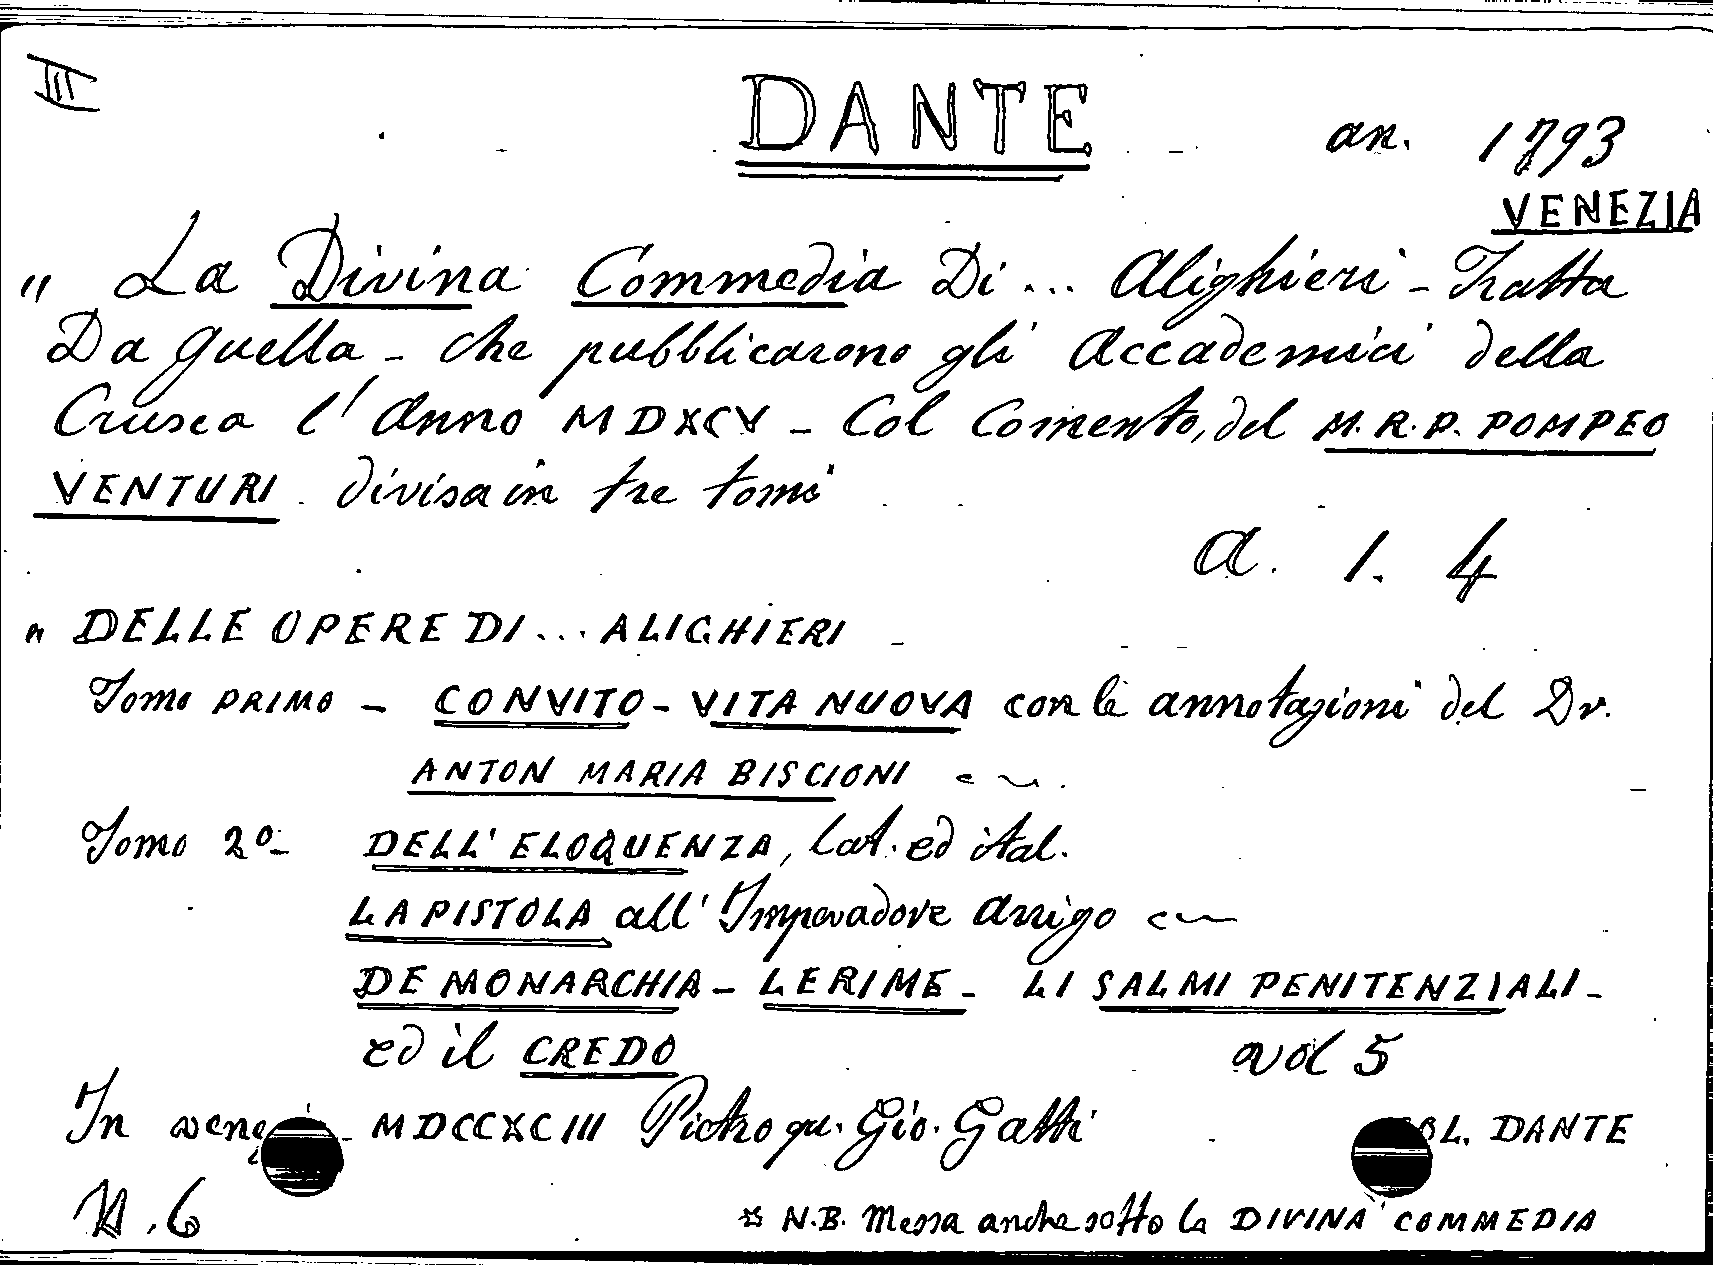 III
DANTE
an. 1793
VENEZIA
" La Divina Commedia Di ... Alighieri - Tratta
Da quella - che pubblicarono gli Accademici della
Crusca l'Anno MDXCV - Col Comento, del M.R.P. POMPEO
VENTURI divisa in tre tomi
a. 1. 4
" DELLE OPERE DI ... ALIGHIERI -
Tomo PRIMO - CONVITO - VITA NUOVA con le annotazioni del Dr.
ANTON MARIA BISCIONI
Tomo 2º - DELL'ELOQUENZA, lat. ed ital.
LA PISTOLA all'Imperadore Arrigo
DE MONARCHIA - LE RIME - LI SALMI PENITENZIALI -
ed il CREDO vol 5
In - MDCCXCIII Pietro qu. Gio. Gatti OL. DANTE
N. 6
* N.B. Messa anche sotto la DIVINA COMMEDIA